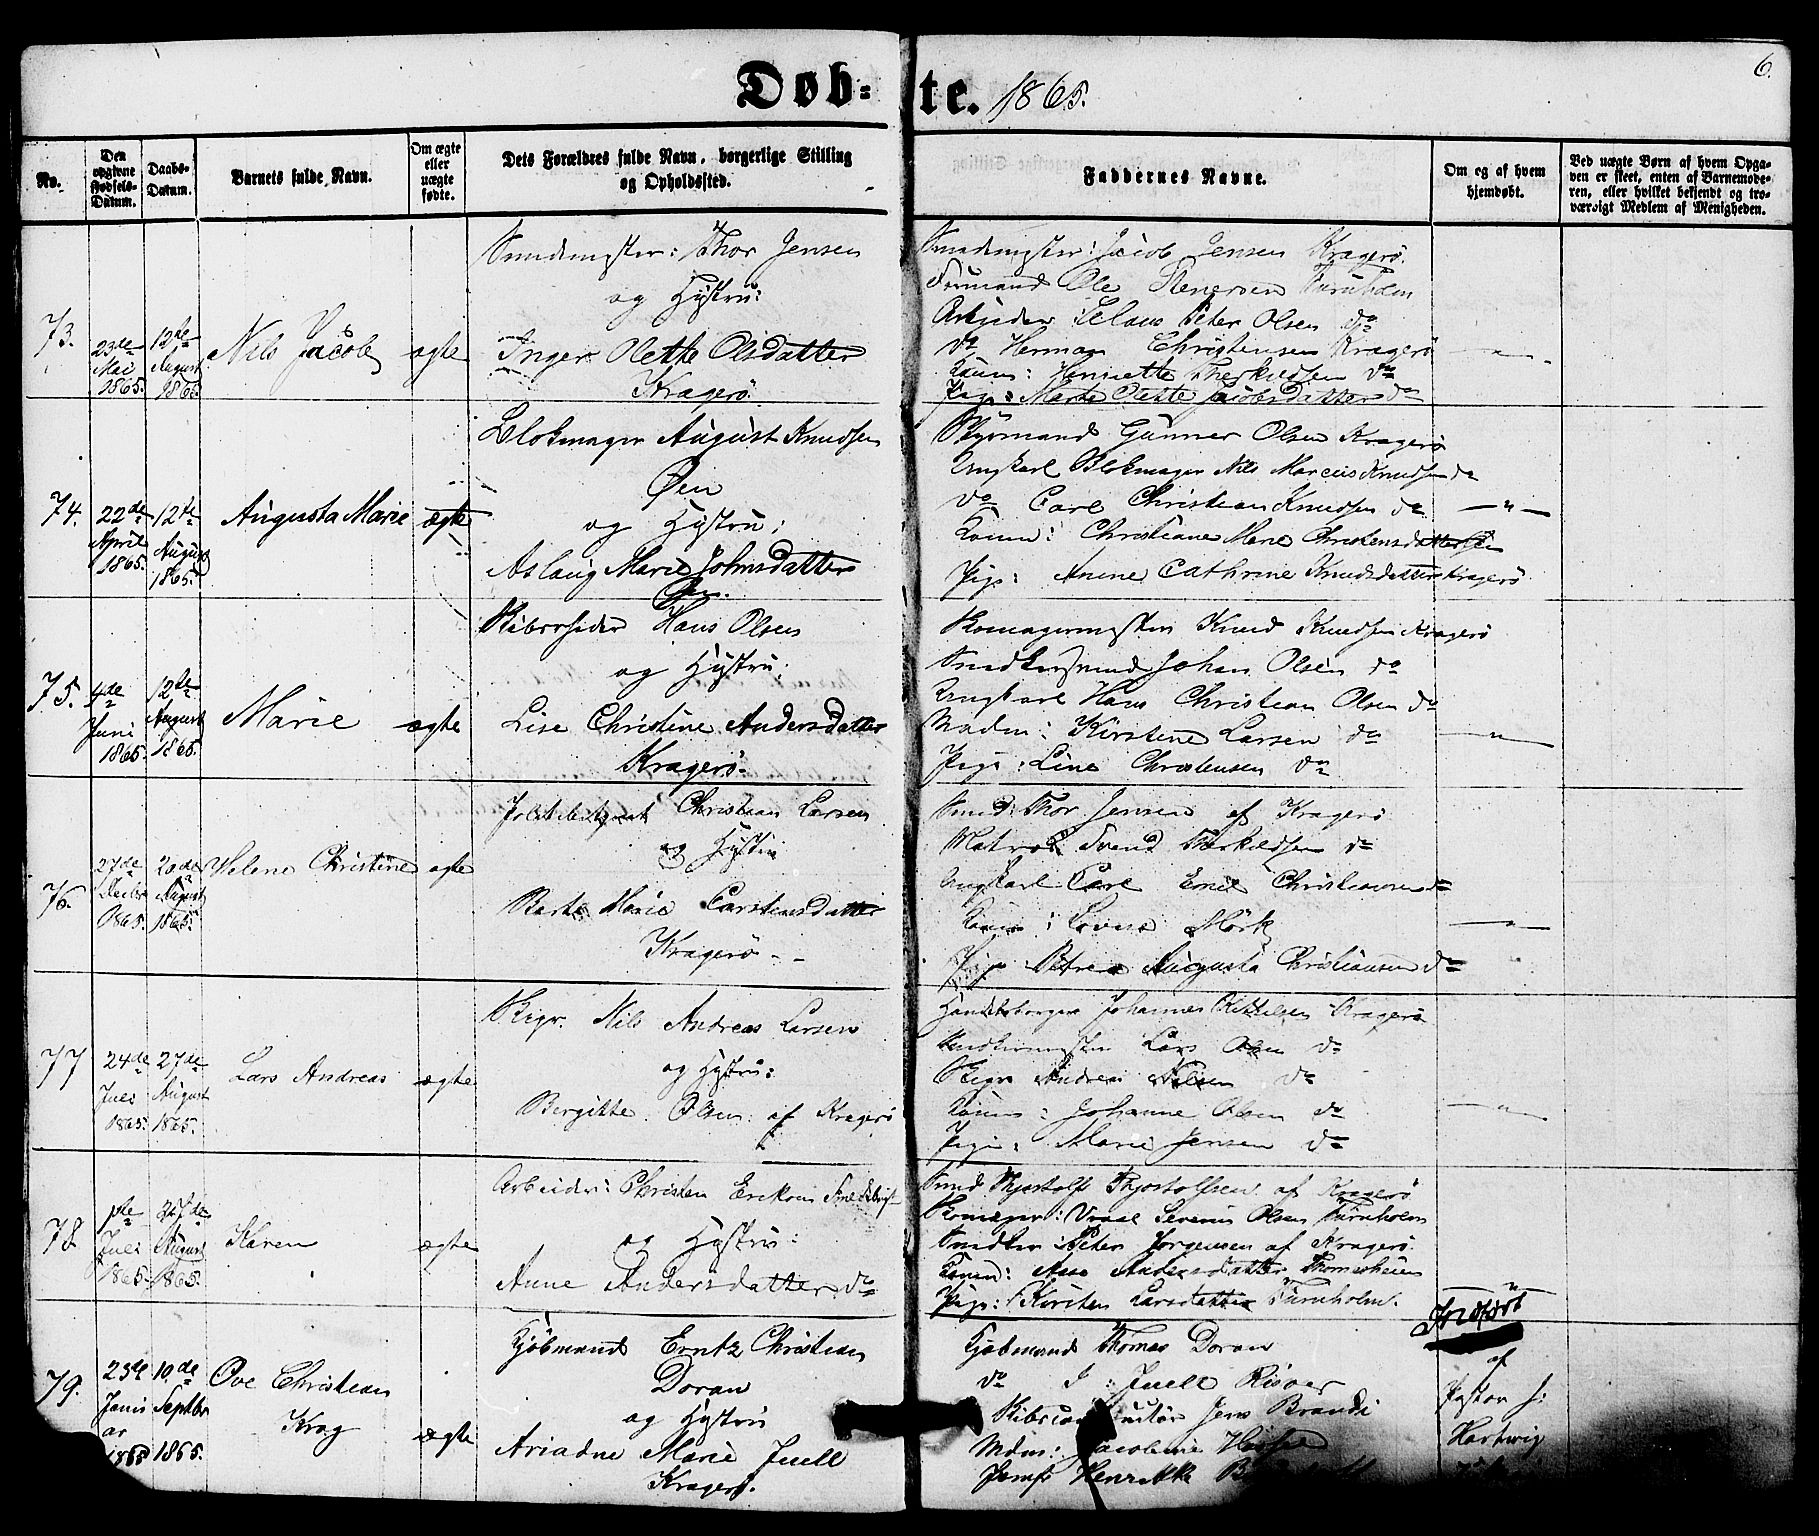 6.
Døb-te. 1865.
No.
Den opgivne Fødsels-Datum.
Daabs-Datum.
Barnets fulde Navn.
Om ægte eller uægte fødte.
Dets Forældres fulde Navn, borgerlige Stilling og Opholdssted.
Faddernes Navne.
Om og af hvem hjemdøbt.
Ved uægte Børn af hvem Opgaven er skeet, enten af Barnemoderen, eller hvilket bekjendt og troværdigt Medlem af Menigheden.
73.
23de Mai 1865.
12te August 1865.
Nils Jacob
ægte
Smedmester: Thor Jensen
og Hustru:
Inger Olette Olsdatter
Kragerö
Smedmester: Jacob Jensen Kragerö.
Formand Ole Stenersen
Arbeider: Claus Peter Olsen do
do Herman Christensen Kragerö
Konen: Henriette Therkildsen do
Pige: Marte Olette Jacobsdatter do
— " —
74.
22de April 1865.
12te August 1865.
Augusta Marie
ægte
Blokmager August Knudsen
Øen
og Hustru:
Aslaug Marie Johnsdatter
Øen.
Styrmand Gunner Olsen Kragerö
Ungkarl Blokmager Nils Marcus Knudsen do
do Carl Christian Knudsen do
Konen: Christiane Marie Christensdatter Øen
Pige: Anene Cathrine Knudsdatter Kragerö
— " —
75.
4de Juni 1865.
12te August 1865.
Marie
ægte
Hans Olsen
og Hustru:
Lise Christine Andersdatter
Kragerö.
Skomagermester Knud Knudsen Kragerö
Snedkersvend Johan Olsen do
Ungkarl Hans Christian Olsen do
Madm: Kirstine Larsen do
Pige: Line Christensen do
— " —
76.
27de 1865.
20de August 1865.
Helene Christine
ægte
Politibetjent Christian Larsen
og Hustru
Berte Marie Carstensdatter
Kragerö
Smed: Thor Jensen af Kragerö
Matros Svend Therkildsen do
Ungkarl Carl Emil Christiansen do
Konen: Lovise Mörk
Pige Petrea Augusta Christiansen do
— " —
77
24de Juli 1865.
27de August 1865.
Lars Andreas
ægte
Skipr. Nils Andreas Larsen
og Hustru:
Bergitte Olsen af Kragerö
Handelsborger Johannes Kittilsen Kragerö
Lars Olsen do
Skipr Andreas Nilsen do
Konen: Johanne Olsen do
Pige: Marie Jensen do
— " —
78
1ste Juli 1865.
27de August 1865.
Karen
ægte
Arbeider: Christen Eriksen
og Hustru:
Anne Andersdatter do
Smed Thjostolf Thjostolfsen af Kragerö
Skomager: Severin Olsen Furuholm
Snedker: Peter Jörgensen af Kragerö.
Konen: Aase Andersdatter
Pige: Kirsten Larsdatter Furuholm.
— " —
79.
23de Januar 1865
10de Septbr 1865.
Ove Christian Krag
ægte
Kjöbmand Erntz Christian
Doran
og Hustru
Ariadne Marie Juell
Kragerö.
Kjøbmand Thomas Doran
do J. Juell Risöer
Jens Brandi
Mdm: Jacobine
Jomf Henrikke
Indfört
af
Pastor J:
Hartwig